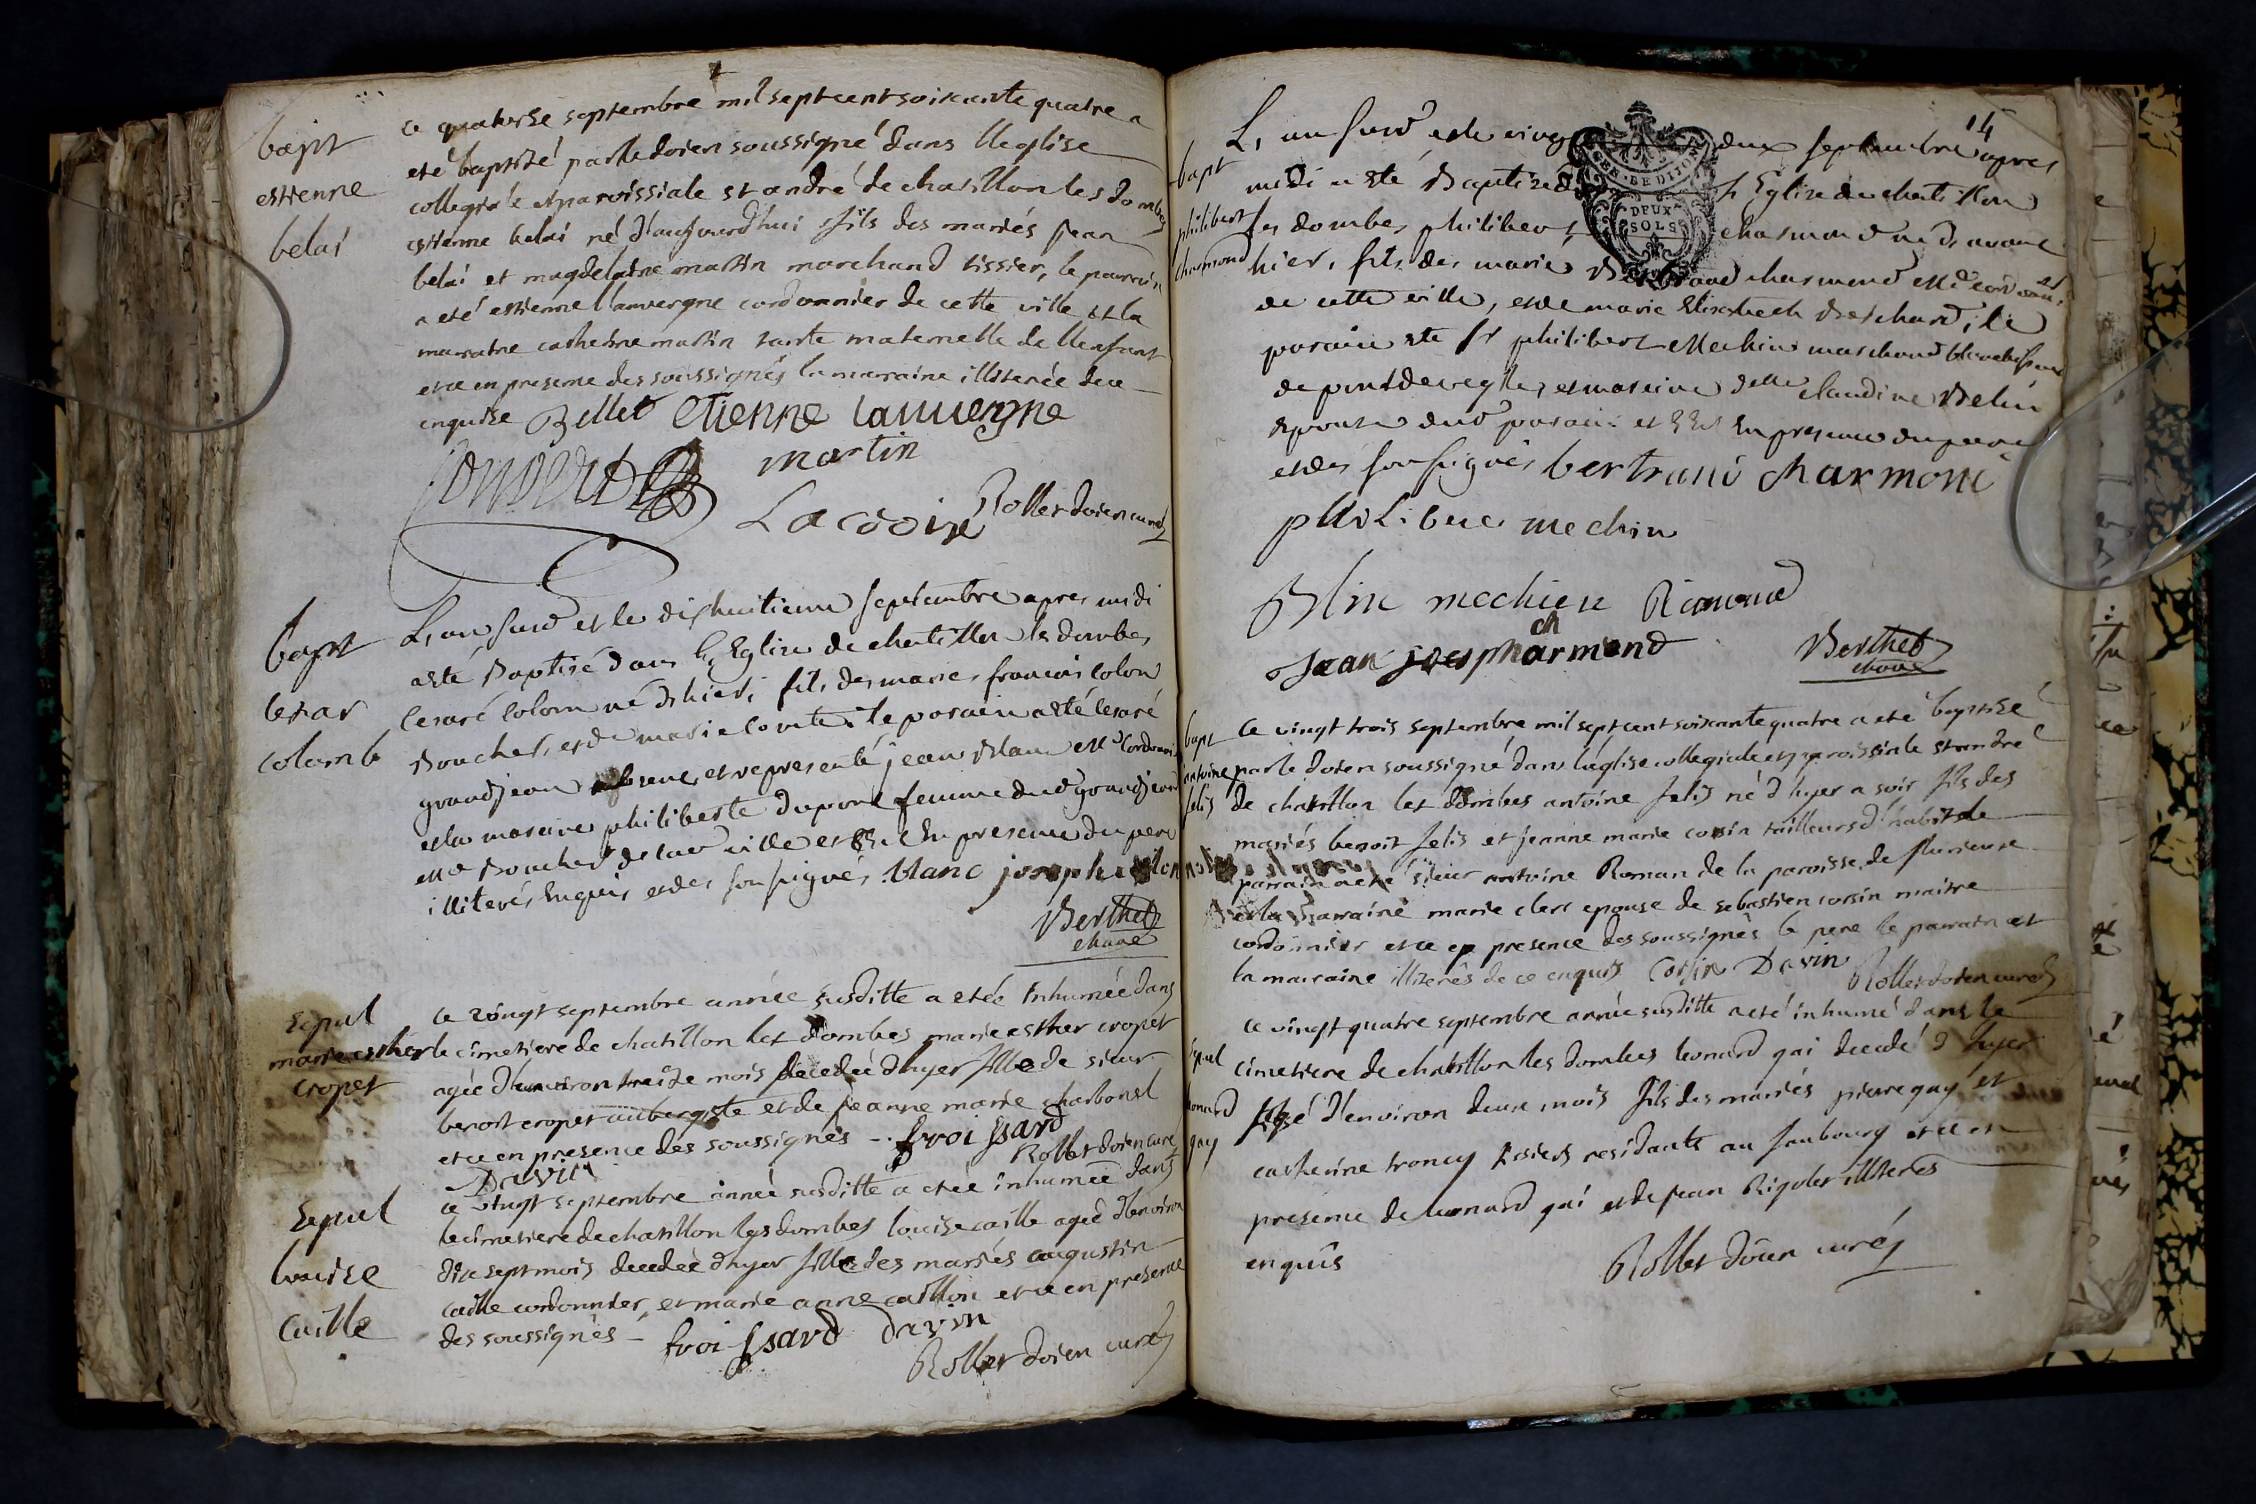 bapt
estienne
belai
ce quatorse septembre mil sept cent soixante quatre a
eté baptisé par le doien soussigné dans l'eglise
collegiale et paroissiale st andré de chatillon les dombes
estienne belai né d'aujourd'hui fils des mariés jean
belai et magdelaine martin marchand tissier, le parrain
a eté estienne l'auvergne cordonnier de cette ville et la
marraine catherine martin tante maternelle de l'enfant
et ce en presence des soussignés la marraine illiterée de ce
enquise Billet etienne lauvergne
martin
Lacroix Rollet doien curé
bapt
cesar
colomb
L'an susd et le dixhuitieme septembre apres midi
a été Baptisé dans l'Eglise de chatillon les dombes
Cesaré Colom né d'hier, fils des maries francois Colom
Boucher, et de marie Comte, le parain a été Cesaré
grandjean absent, et representé jean Blanc Me Cordonnier
et la maraine philiberte dupont femme dud grandjean
Md Boucher de lad ville et ce En presence du pere
illiteré, Enquis, et des soussignés Blanc joseph
Berthet
Sepul
marie esther
cropet
ce vingt septembre année susditte a etée inhumée dans
le cimetiere de chatillon les dombes marie esther cropet
agée d'environ treize mois decedée d'hyer fille de sieur
benoit cropet aubergiste et de jeanne marie charbonel
et ce en presence des soussignés - froissard
Davin Rollet doien curé
Sepul
louise
Caille
ce vingt septembre année susditte a etée inhumée dans
le cimetiere de chatillon les dombes louise caille agée d'environ
dix sept mois decedée d'hyer fille des mariés augustin
caille cordonnier, et marie anne caillon et ce en presence
des soussignés - froissard Davin
Rollet doien curé
14
bapt
philibert
charmond
L'an susd et le vingt deux septembre apres
midi a été Baptisé d l'Eglise de chatillon
les dombes, philibert charmond né d'avant
hier, fils des maries Bertrand charmond Md
de cette ville, et de marie Elisabeth Borchard, le
parain a été sr philibert Mechin marchand
de pont de vegle, et maraine delle claudine Belin
Epouse dud parain et En presence du pere
et des soussignés bertrand charmont
philiber mechin
Blin mechien Rimoud
ch
Jean armond
Berthet
bapt
antoine
felis
ce vingt trois septembre mil sept cent soixante quatre a eté baptisé
par le doien soussigné dans l'eglise collegiale et paroissiale st andré
de chatillon les dombes antoine felis né d'hyer a soir fils des
mariés benoit felis et jeanne marie corsin tailleurs d'habit le
parrain a eté sieur antoine Roman de la paroisse de flurieux
et la marraine marie clerc epouse de sebastien corsin maitre
cordonnier et ce en presence des soussignés le pere le parrain et
la marraine illiterés de ce enquis Corsin Davin Rollet doien curé
Sepul
leonard
gay
ce vingt quatre septembre année susditte a eté inhumé dans le
cimetiere de chatillon les dombes leonard gai decedé d'hyer
agé d'environ deux mois fils des mariés pierre gay et
catherine troncy tissiers residants au faubourg et ce en
presence de leonard gai et de jean Rigolet illiterés
enquis Rollet doien curé